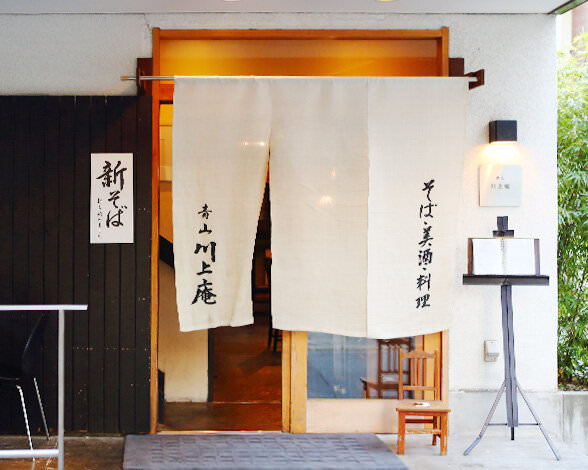 新そば
青山
川上庵
そば・美酒・料理
川上庵